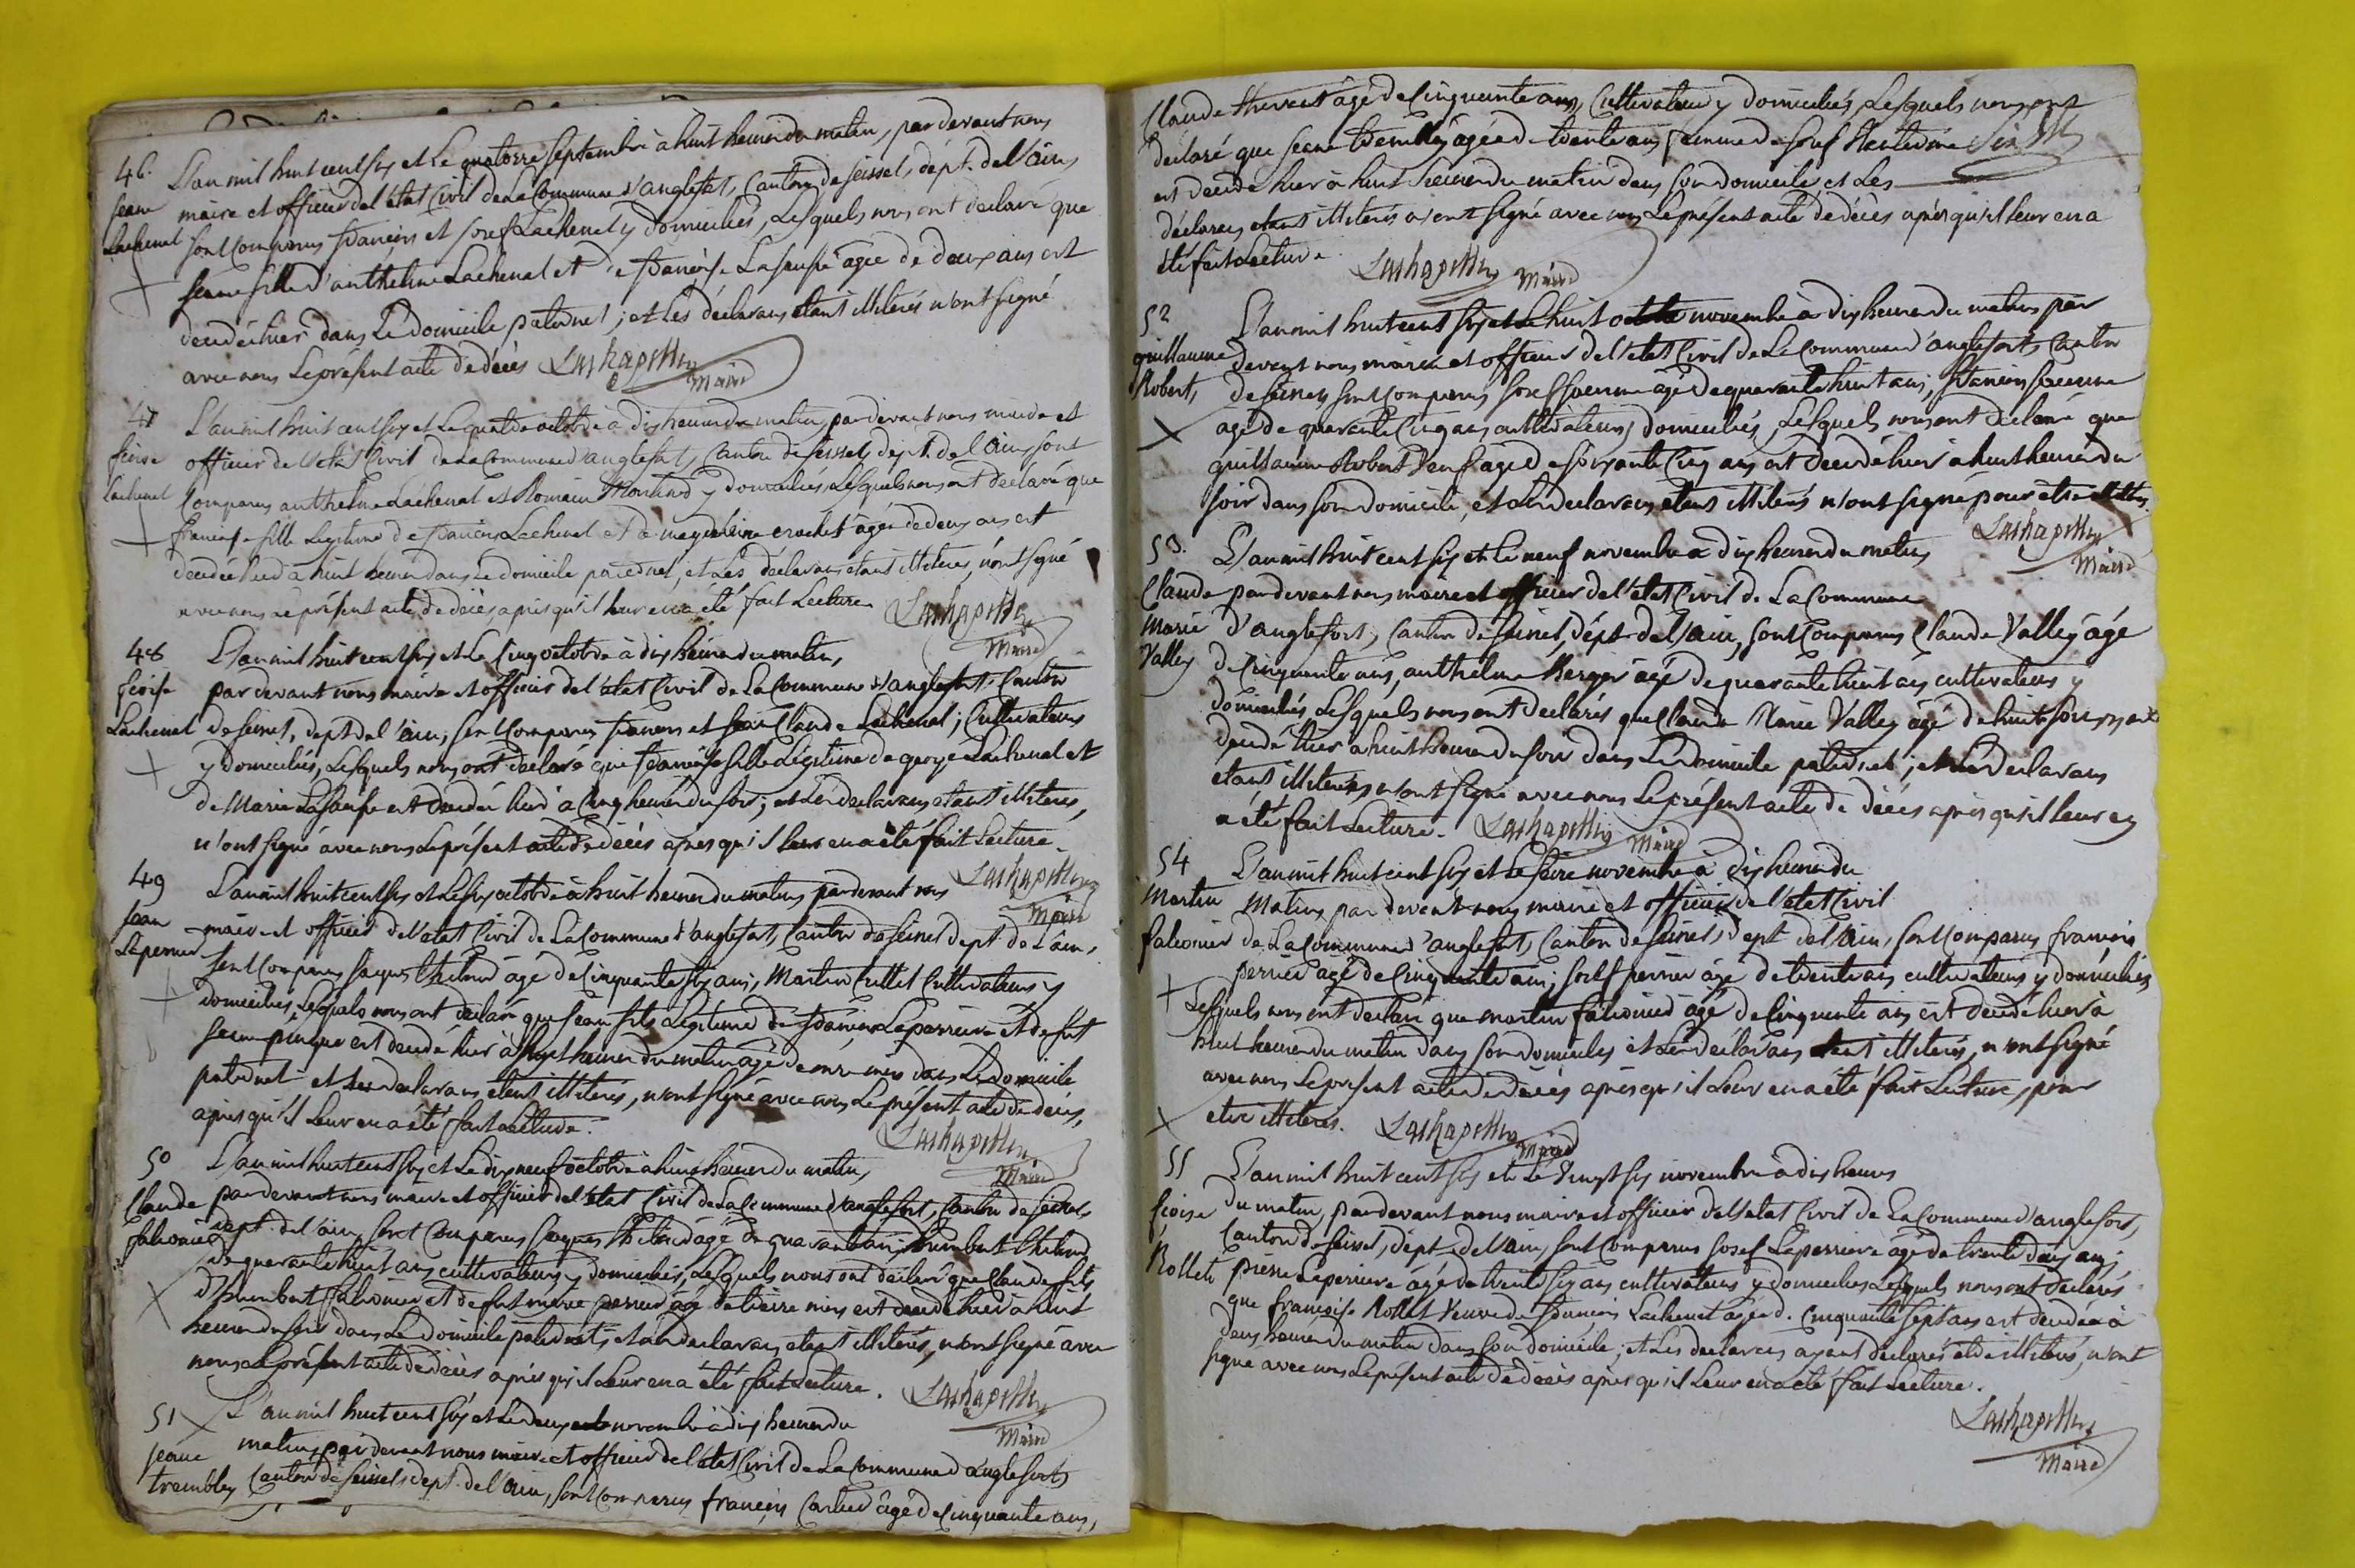 46.
jeane
Lachenal
L'an mil huit cent six et le quatorze septembre à huit heures du matin, par devant nous
maire et officier de l'état Civil de la Commune d'anglefort, Canton de seissel, dépt. de l'ain,
sont Comparus francois et josef Lachenal y domiciliés, Lesquels nous ont déclaré que
jeane fille d'anthelme Lachenal et de francoise Lasausse agée de deux ans est
decedée hier dans le domicile paternel; et les déclarans étant illiterés n'ont signé
avec nous le présent acte de décès Lachapelle
maire
47
feoise
lachenal
L'an mil huit cent six et le quatre octobre à dix heures du matin, par devant nous maire et
officier de l'état Civil de la Commune d'anglefort, Canton de seissel, dépt. de l'ain, sont
Comparus anthelme Lachenal et Romain y domiciliés, Lesquels nous ont déclaré que
francoise fille Legitime de francois Lachenal et de magdeleine crochet agée de deux ans est
decedée hier à huit heures dans le domicile paternel, et Les déclarans étant illiterés, n'ont signé
avec nous le présent acte de décès, après qu'il leur en a été fait Lecture. Lachapelle
maire
48
feoise
Lachenal
L'an mil huit cent six et le Cinq octobre à dix heures du matin,
par devant nous maire et officier de l'état Civil de la Commune d'anglefort, Canton
de seissel, dept. de l'ain, sont Comparus francois et Claude Lachenal; Cultivateurs
y domiciliés, Lesquels nous ont declaré que francoise fille Légitime de george Lachenal et
de Marie Lasausse est decedée hier à Cinq heures du soir; et Les declarans étant illiterés,
n'ont signé avec nous le présent acte de décès après qu'il leur en a été fait Lecture.
Lachapelle
maire
49
jean
Leperrier
L'an mil huit cent six et le six octobre à huit heures du matin, par devant nous
maire et officier de l'état Civil de la Commune d'anglefort, Canton de seissel dept. de L'ain,
sont Comparus jaques agé de Cinquante six ans, Martin Cullet Cultivateurs y
domiciliés, Lesquels nous ont déclaré que jean fils Légitime de francois Leperriere et de fut
jeane est decedé hier à sept heures du matin agé de onze mois dans Le domicile
paternel et Les declarans étant illiterés, n'ont signé avec nous Le présent acte de décès,
après qu'il Leur en a été fait Lecture.
Lachapelle
maire
50
Claude
falconier
L'an mil huit cent six et Le dix neuf octobre à huit heures du matin,
par devant nous maire et officier de l'état Civil de la Commune d'anglefort, Canton de seissel,
dept. de l'ain, sont Comparus jaques agé de quarante ans, humbert
de quarante huit ans cultivateurs y domiciliés, Lesquels nous ont déclaré que Claude fils
d'humbert falconier et de fut marie perrier agé de treize mois est decedé hier à huit
heures du soir dans Le domicile paternel; et Les declarans étant illiterés, n'ont signé avec
nous Le présent acte de décès après qu'il Leur en a été fait Lecture. Lachapelle
maire
51
jeane
trembley
L'an mil huit cent six et Le deux novembre à dix heures du
matin, par devant nous maire et officier de l'état Civil de La Commune d'anglefort,
Canton de seissel, dept. de l'ain, sont Comparus francois Carlier âgé de Cinquante ans,
Claude agé de Cinquante ans, Cultivateurs y domiciliés, Lesquels nous ont
declaré que jeane trembley agée de trente ans femme de josef
est decedée hier à huit heures du matin dans son domicile, et Les
déclarans étant illiterés n'ont signé avec nous Le présent acte de décès après qu'il leur en a
été fait Lecture. Lachapelle maire
52
guillaume
Robert,
L'an mil huit cent six et Le huit novembre à dix heures du matin par
devant nous maire et officier de l'état Civil de La Commune d'anglefort, Canton
de seissel, sont Comparus josef agé de quarante huit ans, francois
agé de quarante Cinq ans cultivateurs y domiciliés, Lesquels nous ont declaré que
guillaume Robert veuf agé de soixante Cinq ans est decedé hier à huit heures du
soir dans son domicile, et Les declarans étant illiterés n'ont signé pour être illiterés.
Lachapelle
maire
53.
Claude
Marie
Valley
L'an mil huit cent six et le neuf novembre à dix heures du matin
par devant nous maire et officier de l'état Civil de La Commune
d'anglefort, Canton de seissel, dépt. de l'ain, sont Comparus Claude Valley agé
de Cinquante ans, anthelme Berger agé de quarante huit ans cultivateurs y
domiciliés Lesquels nous ont declarés que Claude Marie Valley agé de huit jours, est
decedé hier à huit heures du soir dans Le domicile paternel; et Les declarans
étant illiterés n'ont signé avec nous Le présent acte de décès après qu'il leur en
a été fait Lecture. Lachapelle maire
54
Martin
falconier
L'an mil huit cent six et Le seize novembre à dix heures du
matin, par devant nous maire et officier de l'état Civil
de La Commune d'anglefort, Canton de seissel, dept. de l'ain, sont Comparus francois
perrier agé de Cinquante ans; josef perrier âgé de trente ans cultivateurs y domiciliés
Lesquels nous ont declaré que martin falconier agé de Cinquante ans est decedé hier à
huit heures du matin dans son domicile, et Les declarans étant illiterés, n'ont signé
avec nous Le présent acte de décès après qu'il Leur en a été fait Lecture, pour
être illiterés. Lachapelle maire
55
feoise
Rollet
L'an mil huit cent six et Le Vingt six novembre à dix heures
du matin, par devant nous maire et officier de l'état Civil de La Commune d'anglefort,
Canton de seissel, dépt. de l'ain, sont Comparus josef Leperriere agé de trente deux ans;
pierre Leperriere agé de trente six ans cultivateurs y domiciliés Lesquels nous ont declarés
que françoise Rollet veuve de francois Lachenal agée de Cinquante sept ans est decedée à
deux heures du matin dans son domicile; et Les declarans ayant declarés être illiterés, n'ont
signé avec nous Le présent acte de décès après qu'il Leur en a été fait Lecture.
Lachapelle
Maire